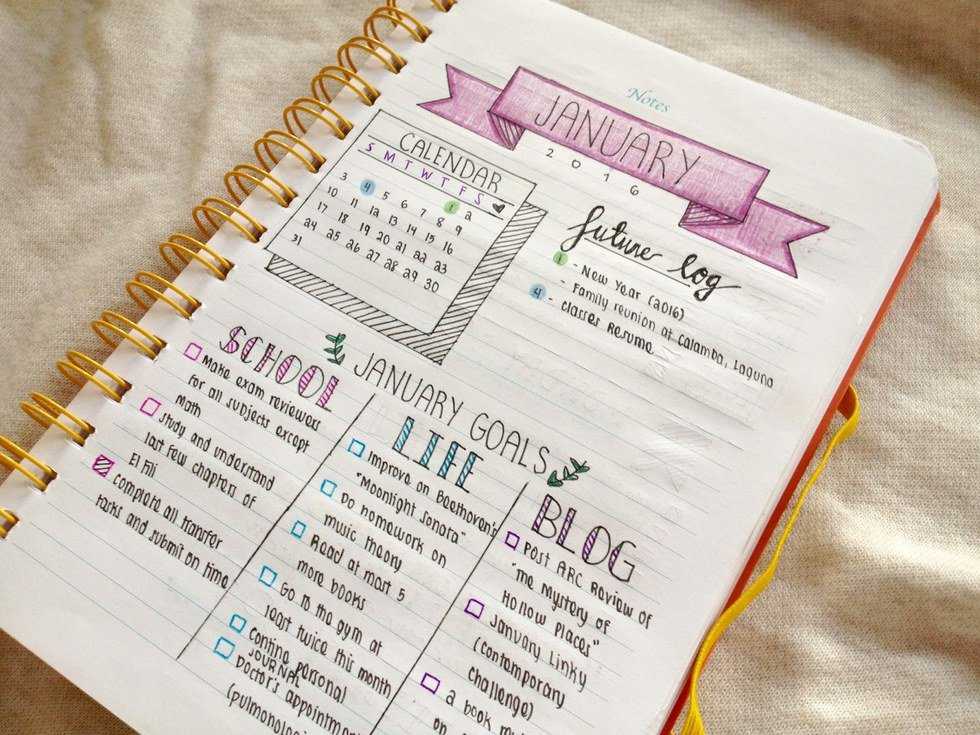 Notes
JANUARY
2016
CALENDAR
S M T W T F S
1 2
3 4 5 6 7 8 9
10 11 12 13 14 15 16
17 18 19 20 21 22 23
24 25 26 27 28 29 30
31
future log
1 - New Year (2016)
- Family reunion at Calamba, Laguna
4 - Classes Resume
JANUARY GOALS
SCHOOL
Make exam reviewers
for all subjects except
Math
Study and understand
last few chapters of
El Fili
Complete all transfer
tasks and submit on time
LIFE
Improve on Beethoven's
"Moonlight Sonata"
Do homework on
music theory
Read at most 5
more books
Go to the gym at
least twice this month
Contine personal
JOURNAL
Doctor's appointment
(pulmonolo
BLOG
Post ARC Review of
"The Mystery of
Hollow Places"
January Linky
(Contemporary
Challenge)
a book
on